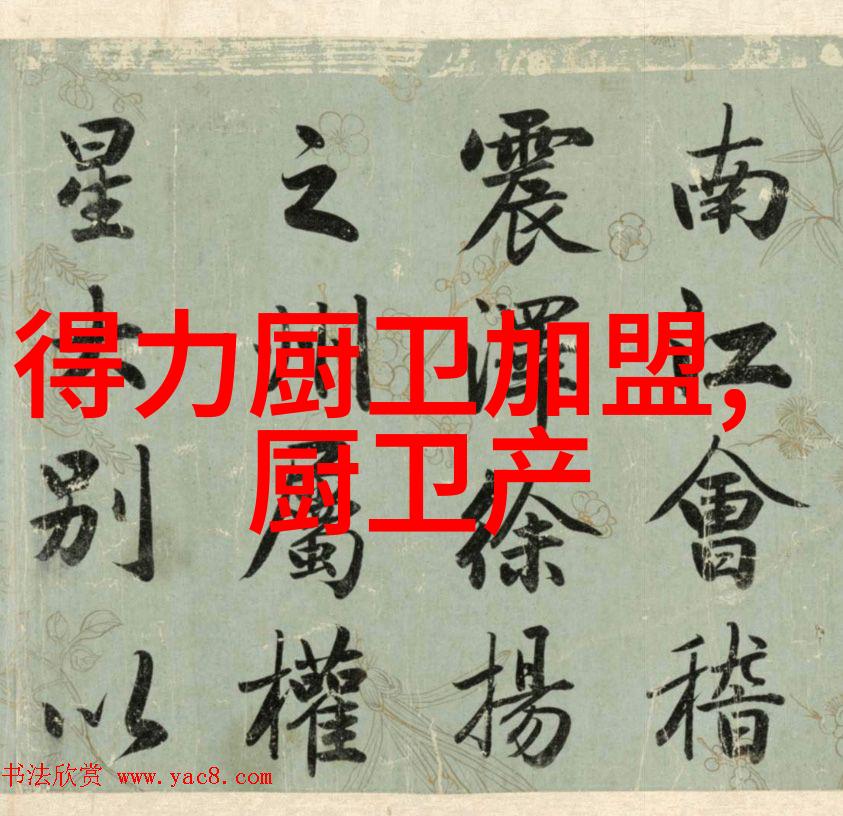 南江會稽
震澤徐揚
之屬權
星别以
得力厨卫加盟,
厨卫产
书法欣赏 www.yac8.com